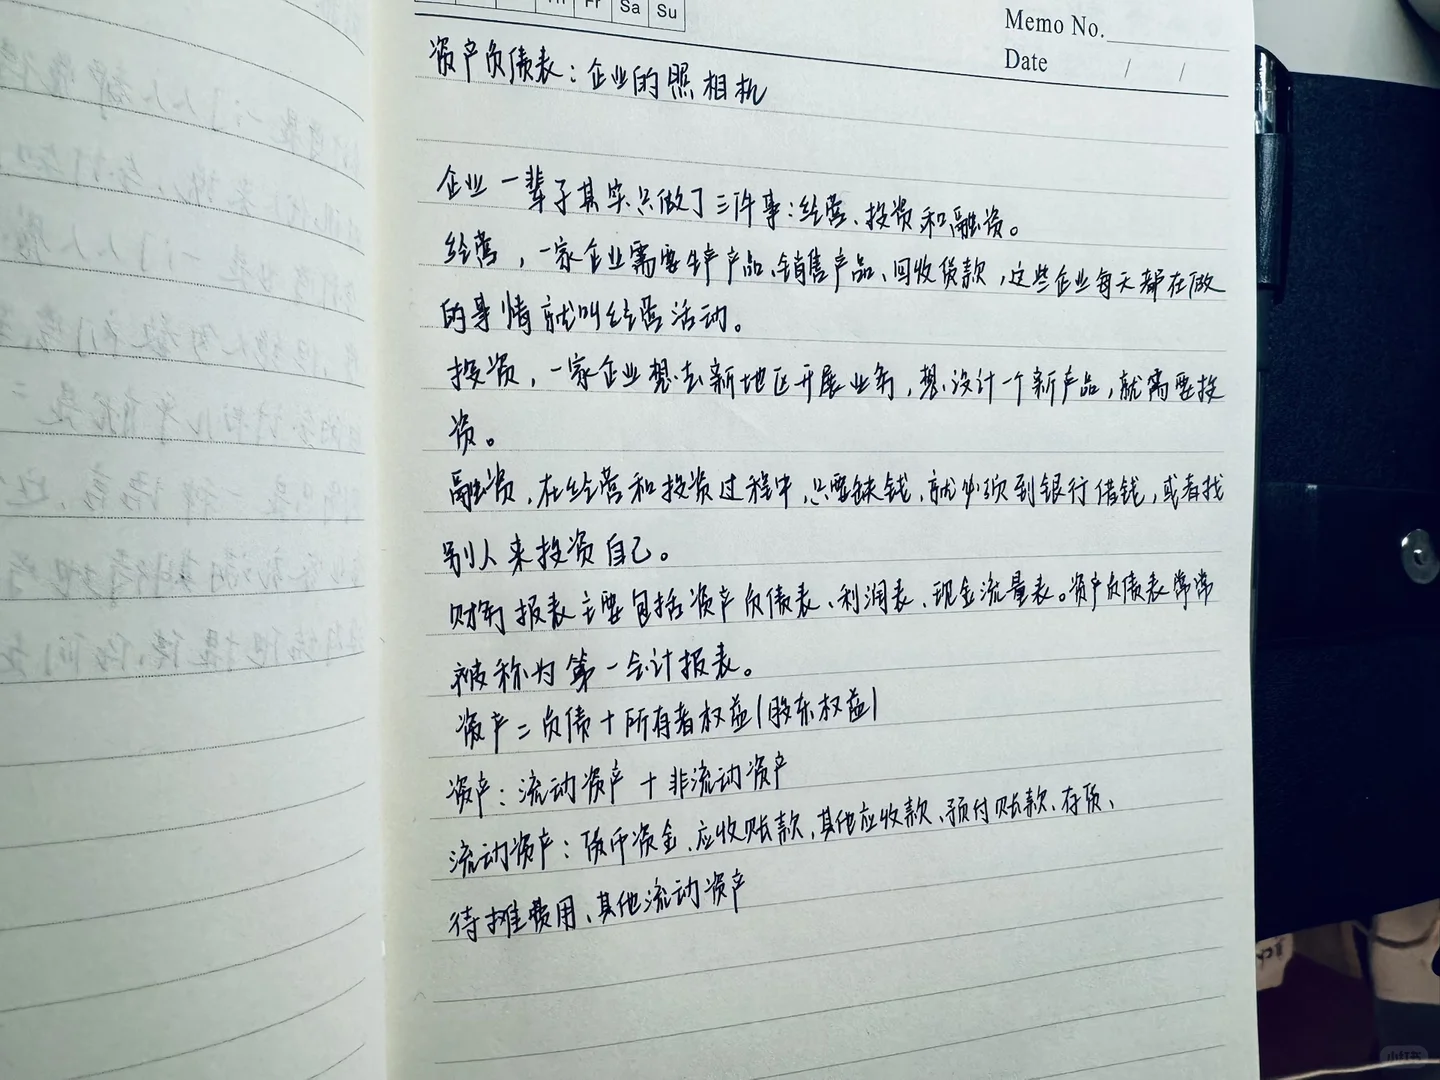 Th Fr Sa Su
Memo No.
Date / /
资产负债表：企业的照相机
企业一辈子其实只做了三件事：经营、投资和融资。
经营，一家企业需要生产产品、销售产品、回收货款，这些企业每天都在做
的事情就叫经营活动。
投资，一家企业想去新地区开展业务，想设计一个新产品，就需要投
资。
融资，在经营和投资过程中，只要缺钱，就必须到银行借钱，或者找
别人来投资自己。
财务报表主要包括资产负债表、利润表、现金流量表。资产负债表常常
被称为第一会计报表。
资产=负债+所有者权益(股东权益)
资产：流动资产+非流动资产
流动资产：货币资金、应收账款、其他应收款、预付账款、存货、
待摊费用、其他流动资产
小红书